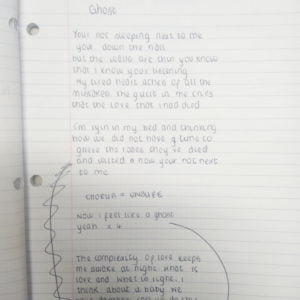 Ghost
Your not sleeping next to me
your down the hall
but the walls are thin you know
that I know your listening
My tired heart aches of all the
mistakes the guilt in me cries
that the love that I had died
I'm lyin in my bed and thinking
how we did not have g time to
grieve the loses they've died
and wilted & now your not next
to me
CHORUS = UNSURE
Now I feel like a ghost
yeah x 4
The complexity of love keeps
me awake at night what is
love and what is right. I
think about a baby we